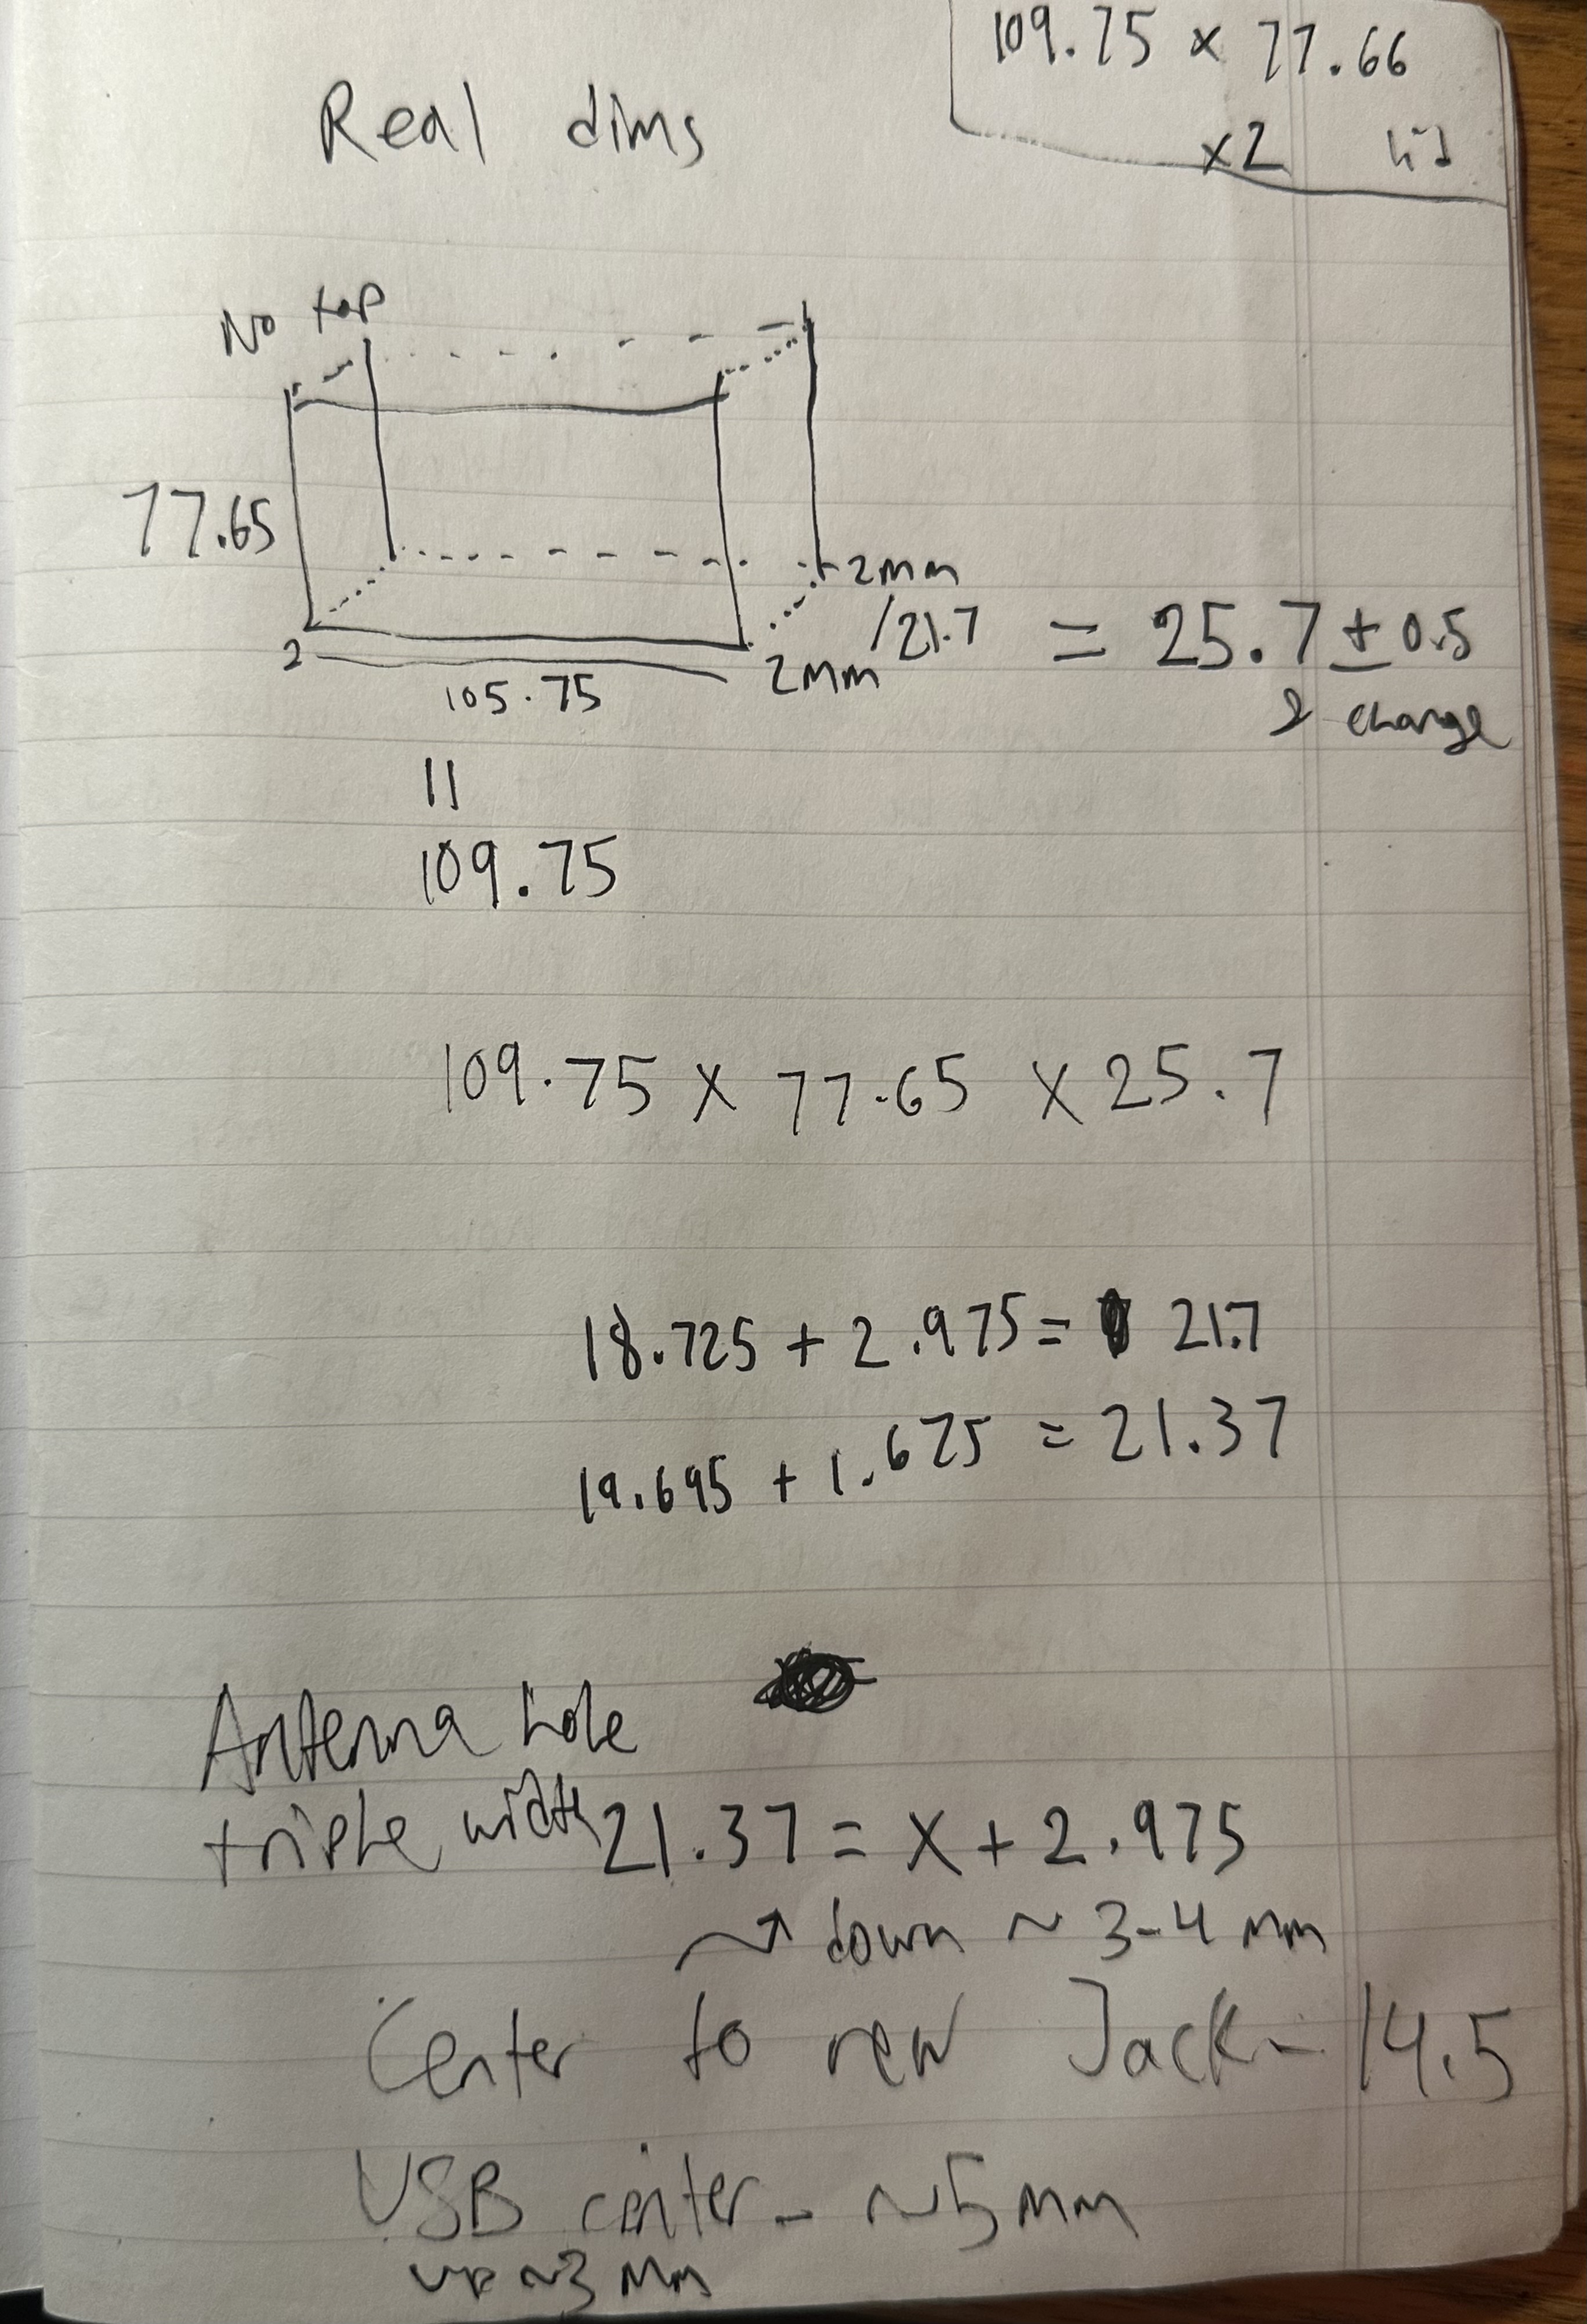 109.75 x 77.66
x2 lid
Real dims
No top
77.65
2mm
/21.7 = 25.7 ± 0.5
2
2mm
105.75
change
||
109.75
109.75 x 77.65 x 25.7
18.725 + 2.975 = 21.7
19.695 + 1.675 = 21.37
Antenna hole
triple width
21.37 = x + 2.975
↗ down ~ 3-4 mm
Center to new Jack - 14.5
USB center - ~5mm
up ~3 mm